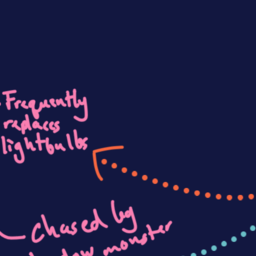 Frequently
replaces
lightbulbs
chased by
monster